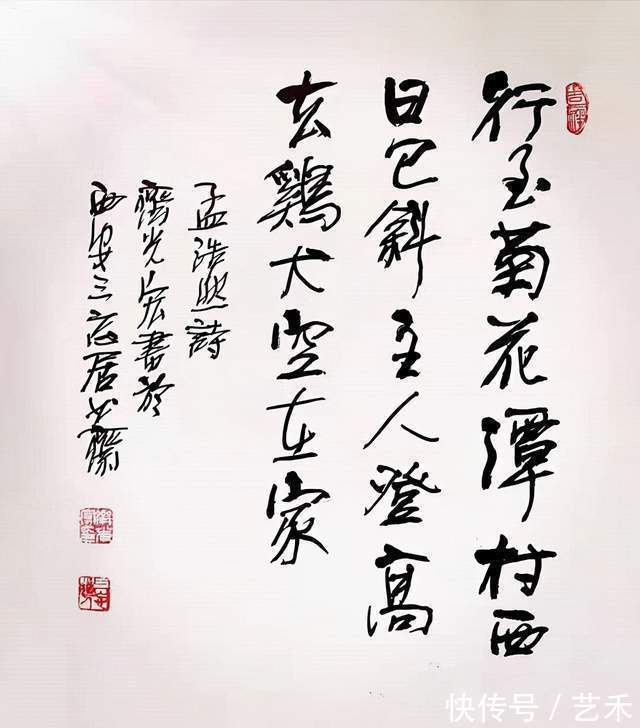 行至菊花潭村西
日已斜主人登高
去鷄犬空在家
孟浩然詩
光宏書於
西安三居
快传号/艺禾